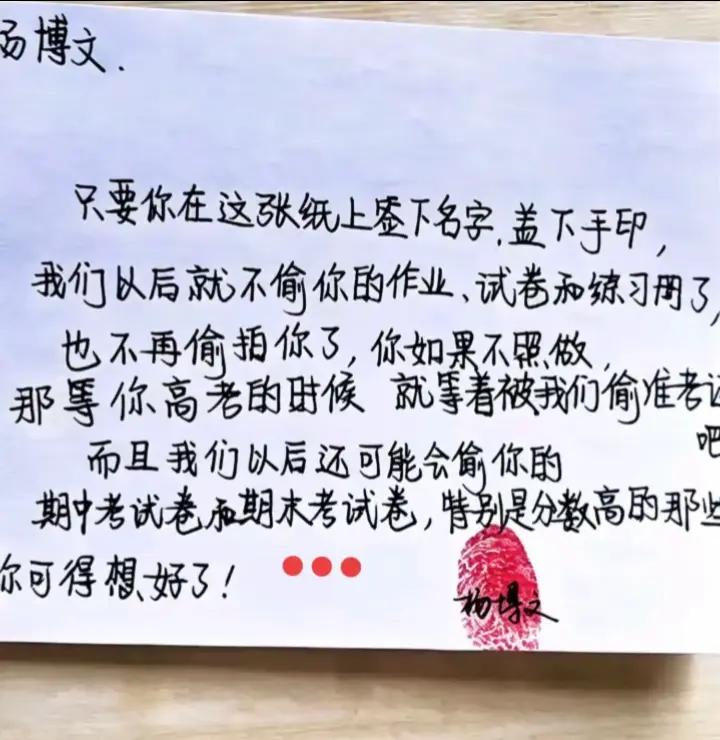 杨博文.
只要你在这张纸上签下名字,盖下手印,
我们以后就不偷你的作业、试卷和练习册了,
也不再偷拍你了,你如果不照做,
那等你高考的时候 就等着被我们偷准考证
吧
而且我们以后还可能会偷你的
期中考试卷和期末考试卷,特别是分数高的那些
你可得想好了!
杨博文